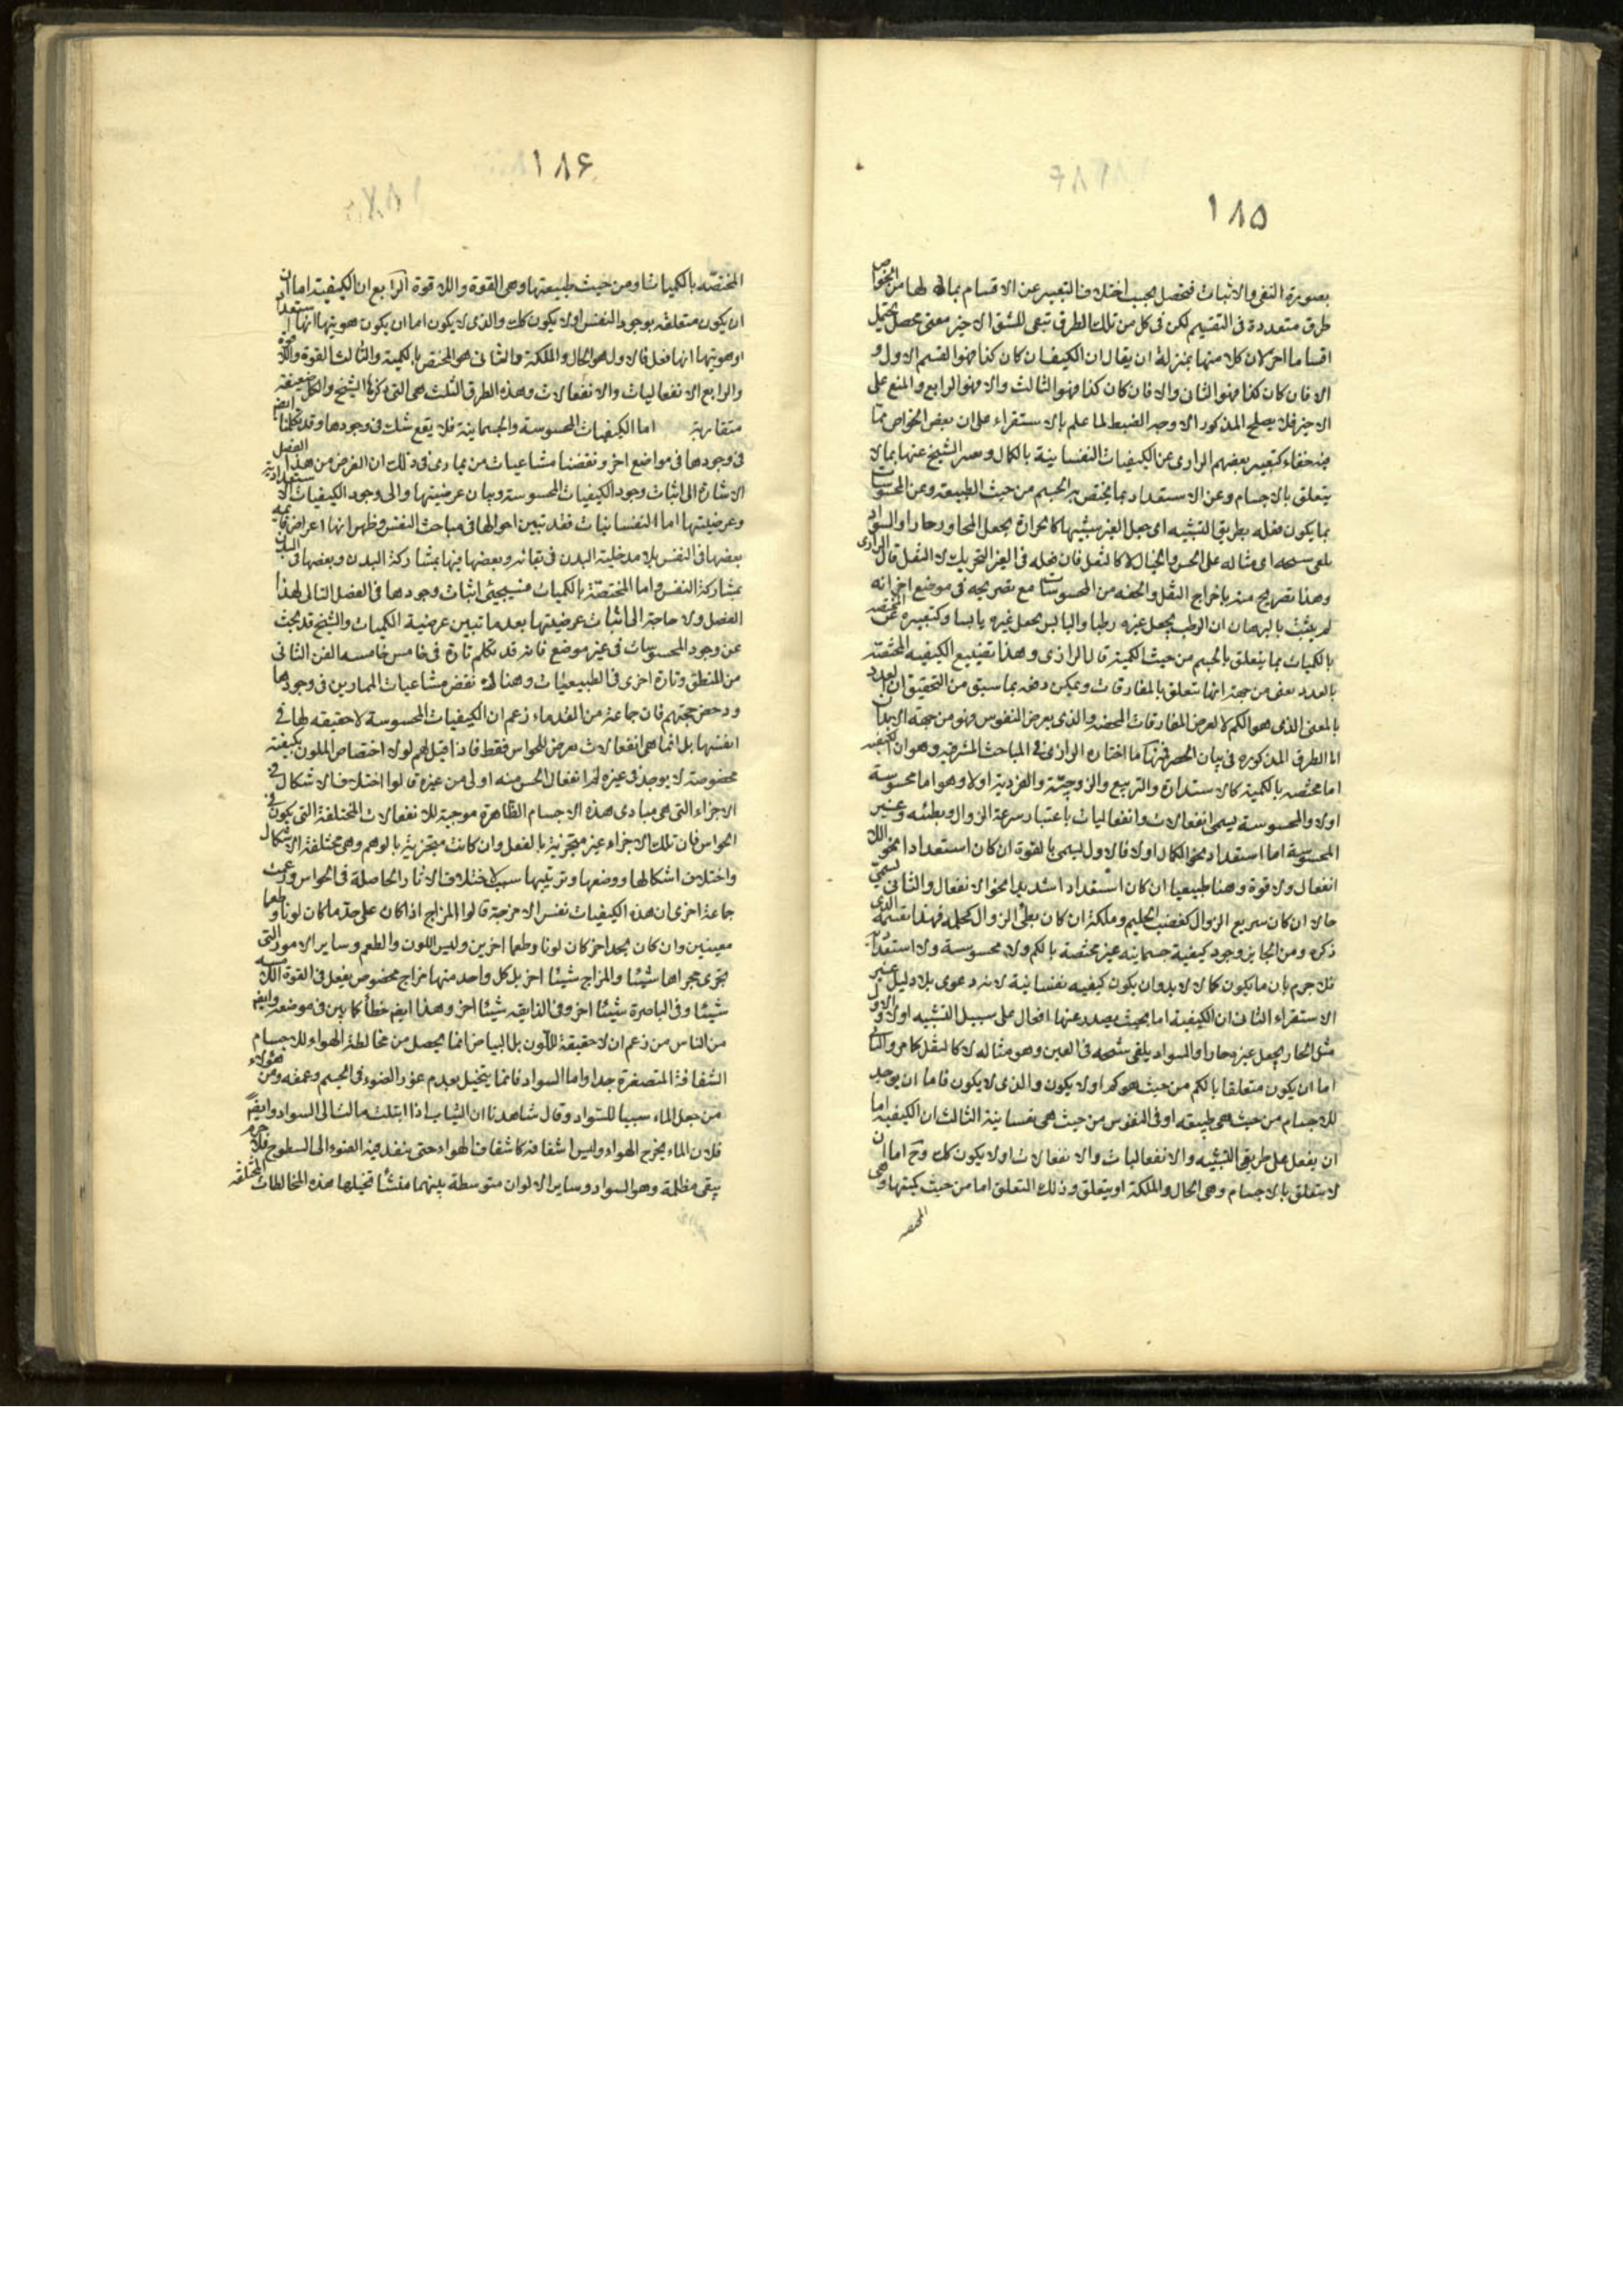 ١٨٥
بصورة النفى والاثبات فيحصل بحسب اختلاف التعبير عن الاقسام بمالها من الخواص
طرق متعددة فى التقسيم لكن فى كل من تلك الطرق تبقى للشق الاخير معنى محصل يحتمل
اقساما اخر لان كلا منها بمنزلة ان يقال ان الكيف ان كان كذا فهو القسم الاول و
الا فان كان كذا فهو الثانى والا فان كان كذا فهو الثالث والا فهو الرابع والمنع على
الاخير فلا يصلح المذكور الا وجه الضبط لما علم بالاستقراء على ان بعض الخواص مما
فيه خفاء كتعبير بعضهم الرازى عن الكيفيات النفسانية بالكمال وعبر الشيخ عنها بما لا
يتعلق بالاجسام وعن الاستعداد بما يختص به الجسم من حيث الطبيعة وعن المحسوسات
بما يكون فعله بطريق التشبيه اى جعل الغير شبيها كالحرارة يجعل المجاور حارا والسواد
يلقى شبحه اى مثاله على الحس والخيال لا كالثقل فان فعله فى الغير التحريك لا الثقل قال الرازى
وهذا تصريح منه باخراج الثقل والخفه من المحسوسات مع تصريحه فى موضع اخر انه
لم يثبت بالبرهان ان الرطب يجعل غيره رطبا واليابس يجعل غيره يابسا وكتعبيره عن المختصه
بالكميات بما يتعلق بالجسم من حيث الكمية قال الرازى وهذا تضييع الكيفيه المختصة
بالعدد يعنى من جهة انها تتعلق بالمفارقات ويمكن دفعه بما سبق من التحقيق ان العدد
بالمعنى الذى هو الكم لا يعرض المفارقات المحضه والذى يعرض النفوس فهو من جهة الابدان
اما الطرق المذكوره فى بيان الحصر فمنها ما اختاره الرازى فى المباحث المشرقيه وهو ان الكيفيه
اما مختصه بالكمية كالاستدارة والتربيع والزوجيّة والفردية اولا وهو اما محسوسة
اولا والمحسوسة يسمى انفعالات وانفعاليات باعتبار سرعة الزوال وبطئه وغير
المحسوسة اما استعداد نحو الكمال اولا فالاول يسمى بالقوة ان كان استعدادا نحو اللا
انفعال ولا قوة وهنا طبيعيا ان كان استعدادا شديدا نحو الانفعال والثانى يسمى
حالا ان كان سريع الزوال كغضب الحليم وملكة ان كان بطئ الزوال كحلمه فهذا تقسيمه الذى
ذكره ومن الجايز وجود كيفية جسمانيه غير مختصة بالكم ولا محسوسة ولا استعداد
فلا جرم بان ما يكون كمالا لا بد وان يكون كيفيه نفسانية لانه دعوى بلا دليل غير
الاستقراء الثانى ان الكيفية اما بحيث يصدر عنها افعال على سبيل التشبيه اولا والاول
مثل الحار يجعل غيره حارا والسواد يلقى شبحه فى العين وهو مثاله لا كالثقل كما مر والثانى
اما ان يكون متعلقا بالكم من حيث هو كم اولا يكون والذى لا يكون فاما ان يوجد
للاجسام من حيث هى طبيعه اوفى النفوس من حيث هى نفسانية الثالث ان الكيفيه اما
ان يفعل على طريق التشبيه والانفعاليات والانفعالات اولا يكون كك وح اما ان
لا يتعلق بالاجسام وهى الحال والملكة او يتعلق وذلك التعلق اما من حيث كميتها وهى
المختصه
١٨۶
المختصّه بالكميات او من حيث طبيعتها وهى القوة واللا قوة الرّابع ان الكيفية اما ان
ان يكون متعلقه بوجود النفس اولا يكون كك والذى لا يكون اما ان يكون هويتها انها استعداد
اوهويتها انها فعل فالاول هو الحال والملكة والثانى هو المختص بالكمية والثالث القوة واللا قوة
والرابع الانفعاليات والانفعالات وهذه الطرق الثلث هى التى ذكرها الشيخ والكل ضعيفة
متقاربة اما الكيفيات المحسوسة والجسمانية فلا يقع شك فى وجودها وقد تكلمنا ايضم
فى وجودها فى مواضع اخر ونقضنا مشاغبات من يمارى فى ذلك ان الغرض من هذا الفصل
الاشارة الى اثبات وجود الكيفيات المحسوسة وبيان عرضيتها والى وجود الكيفيات الاستعدادية
وعرضيتها اما النفسانيات فقد تبين احوالها فى مباحث النفس وظهر انها اعراض قائمه
بعضها فى النفس بلا مدخلية البدن فى بقائه وبعضها فيها بمشاركة البدن وبعضها فى البدن
بمشاركة النفس واما المختصّة بالكميات فسيجيئى اثبات وجودها فى الفصل التالى لهذا
الفصل ولا حاجة الى اثبات عرضيتها بعد ما تبين عرضية الكميات والشيخ قد يحث
عن وجود المحسوسات فى غير موضع فانه قد تكلم تارة فى خامس خامسه الفن الثانى
من المنطق وتارة اخرى فى الطبيعيات وهناك نقض مشاغبات الممارين فى وجودها
ودحض حجتهم فان جماعة من القدماء زعم ان الكيفيات المحسوسة لاحقيقه لها فى
انفسها بل انما هى انفعالات تعرض للحواس فقط فاذا قيل لهم لولا اختصاص الملون بكيفية
مخصوصة لا يوجد فى غيره لما انفعال الحس منه اولى من غيره قالوا اختلاف الاشكال فى
الاجزاء التى هى مبادى هذه الاجسام الظاهرة موجبة للانفعالات المختلفة التى يكون فى
الحواس فان تلك الاجزاء غير متجزئة بالفعل وان كانت متجزئة بالوهم وهى مختلفة الاشكال
واختلاف اشكالها ووضعها وترتيبها سبب لاختلاف الاثار الحاصلة فى الحواس وزعمت
جماعة اخرى ان هذه الكيفيات نفس الامزجة قالوا المزاج اذا كان على حدّ ما كان لونا وطعما
معينين وان كان بحد اخر كان لونا وطعما اخرين وليس اللون والطعم وساير الامور التى
تجرى مجراها شيئا والمزاج شيئا اخر بل كل واحد منها مزاج مخصوص يفعل فى القوة اللامسه
شيئا وفى الباصرة شيئا اخر وفى الذايقه شيئا اخر وهذا ايضم خطأ كما بين فى موضعه وايضم
من الناس من زعم ان لاحقيقة للّون بل البياض انما يحصل من مخالطة الهواء للاجسام
الشفافة المتصغرة جدا واما السواد فانما يتخيل بعدم غور الضوء فى الجسم وعمقه ومن هؤلاء
من جعل الماء سببا للسواد وقال شاهدنا ان الثياب اذا ابتلت مالت الى السواد وايضم
فلان الماء يخرج الهواء وليس اشفافه كاشفاف الهواء حتى ينفذ فيه الضوء الى السطوح فلا جرم
يبقى مظلمة وهو السواد وساير الالوان متوسطة بينهما منشأ تخيلها هذه المخالطات المختلفه